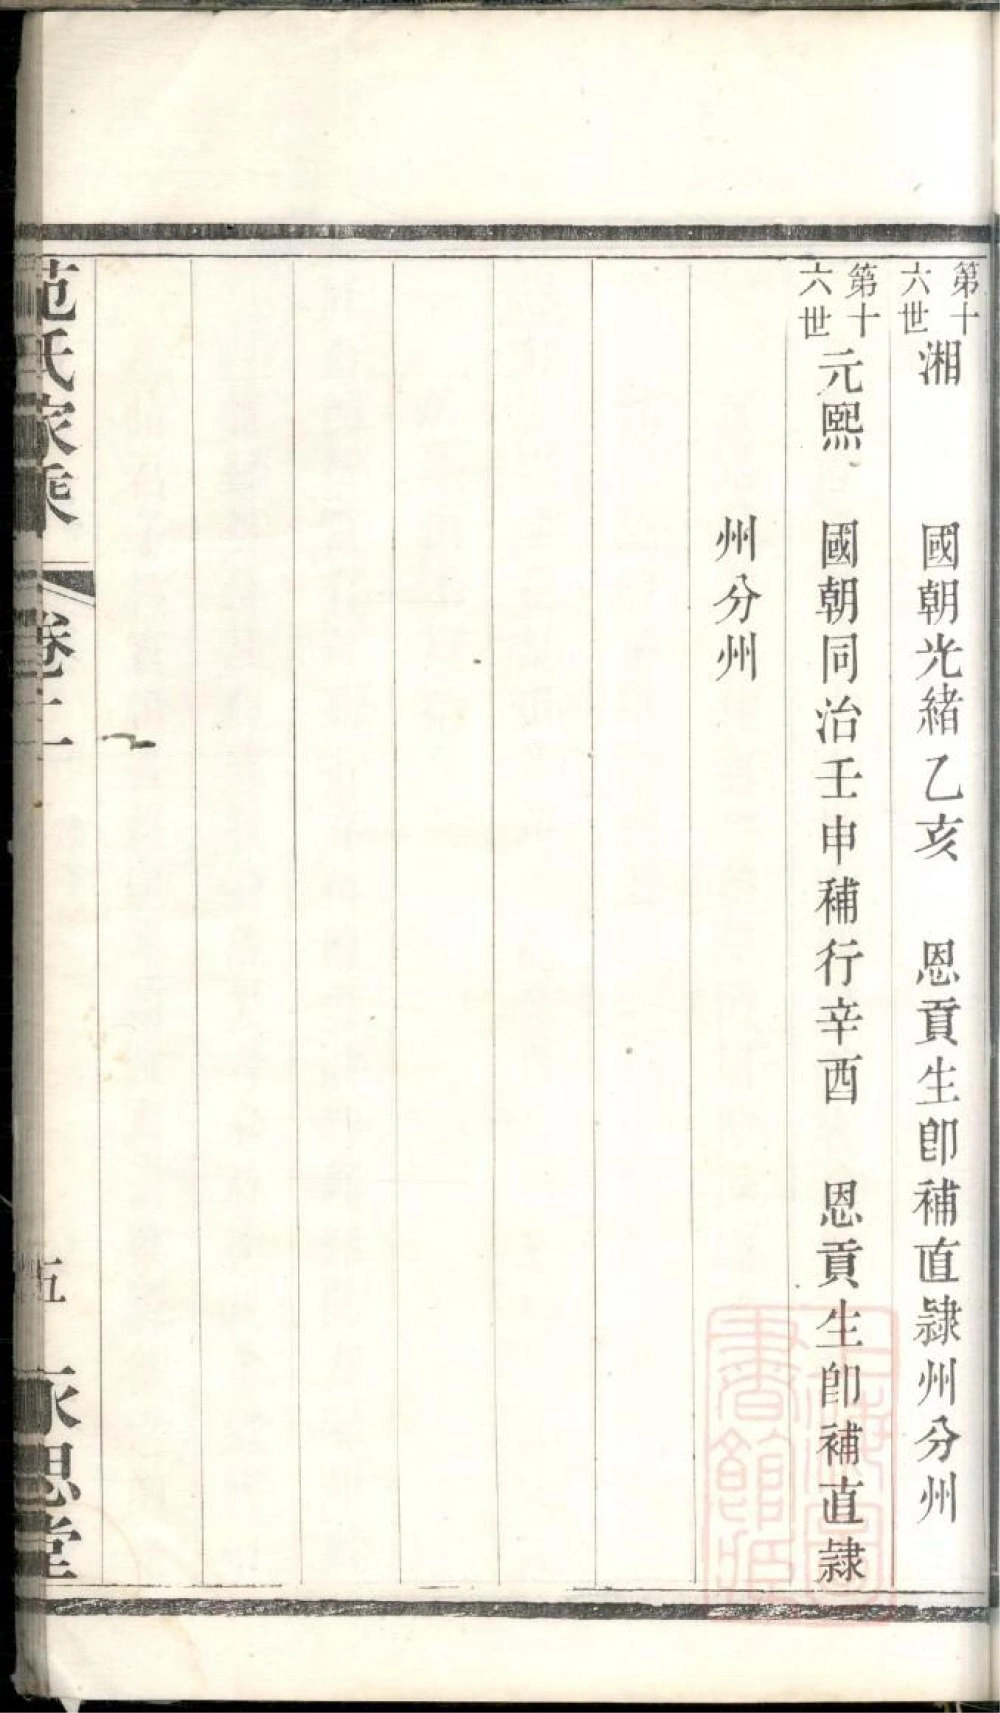 第十六世 湘 國朝光緒乙亥 恩貢生卽補直隸州分州
第十六世 元熙 國朝同治壬申補行辛酉 恩貢生卽補直隸
州分州
范氏家乘 卷二 五 永思堂
上海圖書館藏